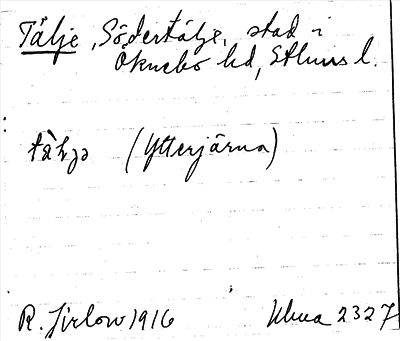 Tälje, Södertälje, stad i
Öknebo hd, Sthlms l.
(Ytterjärna)
R. Jirlow 1916
2327